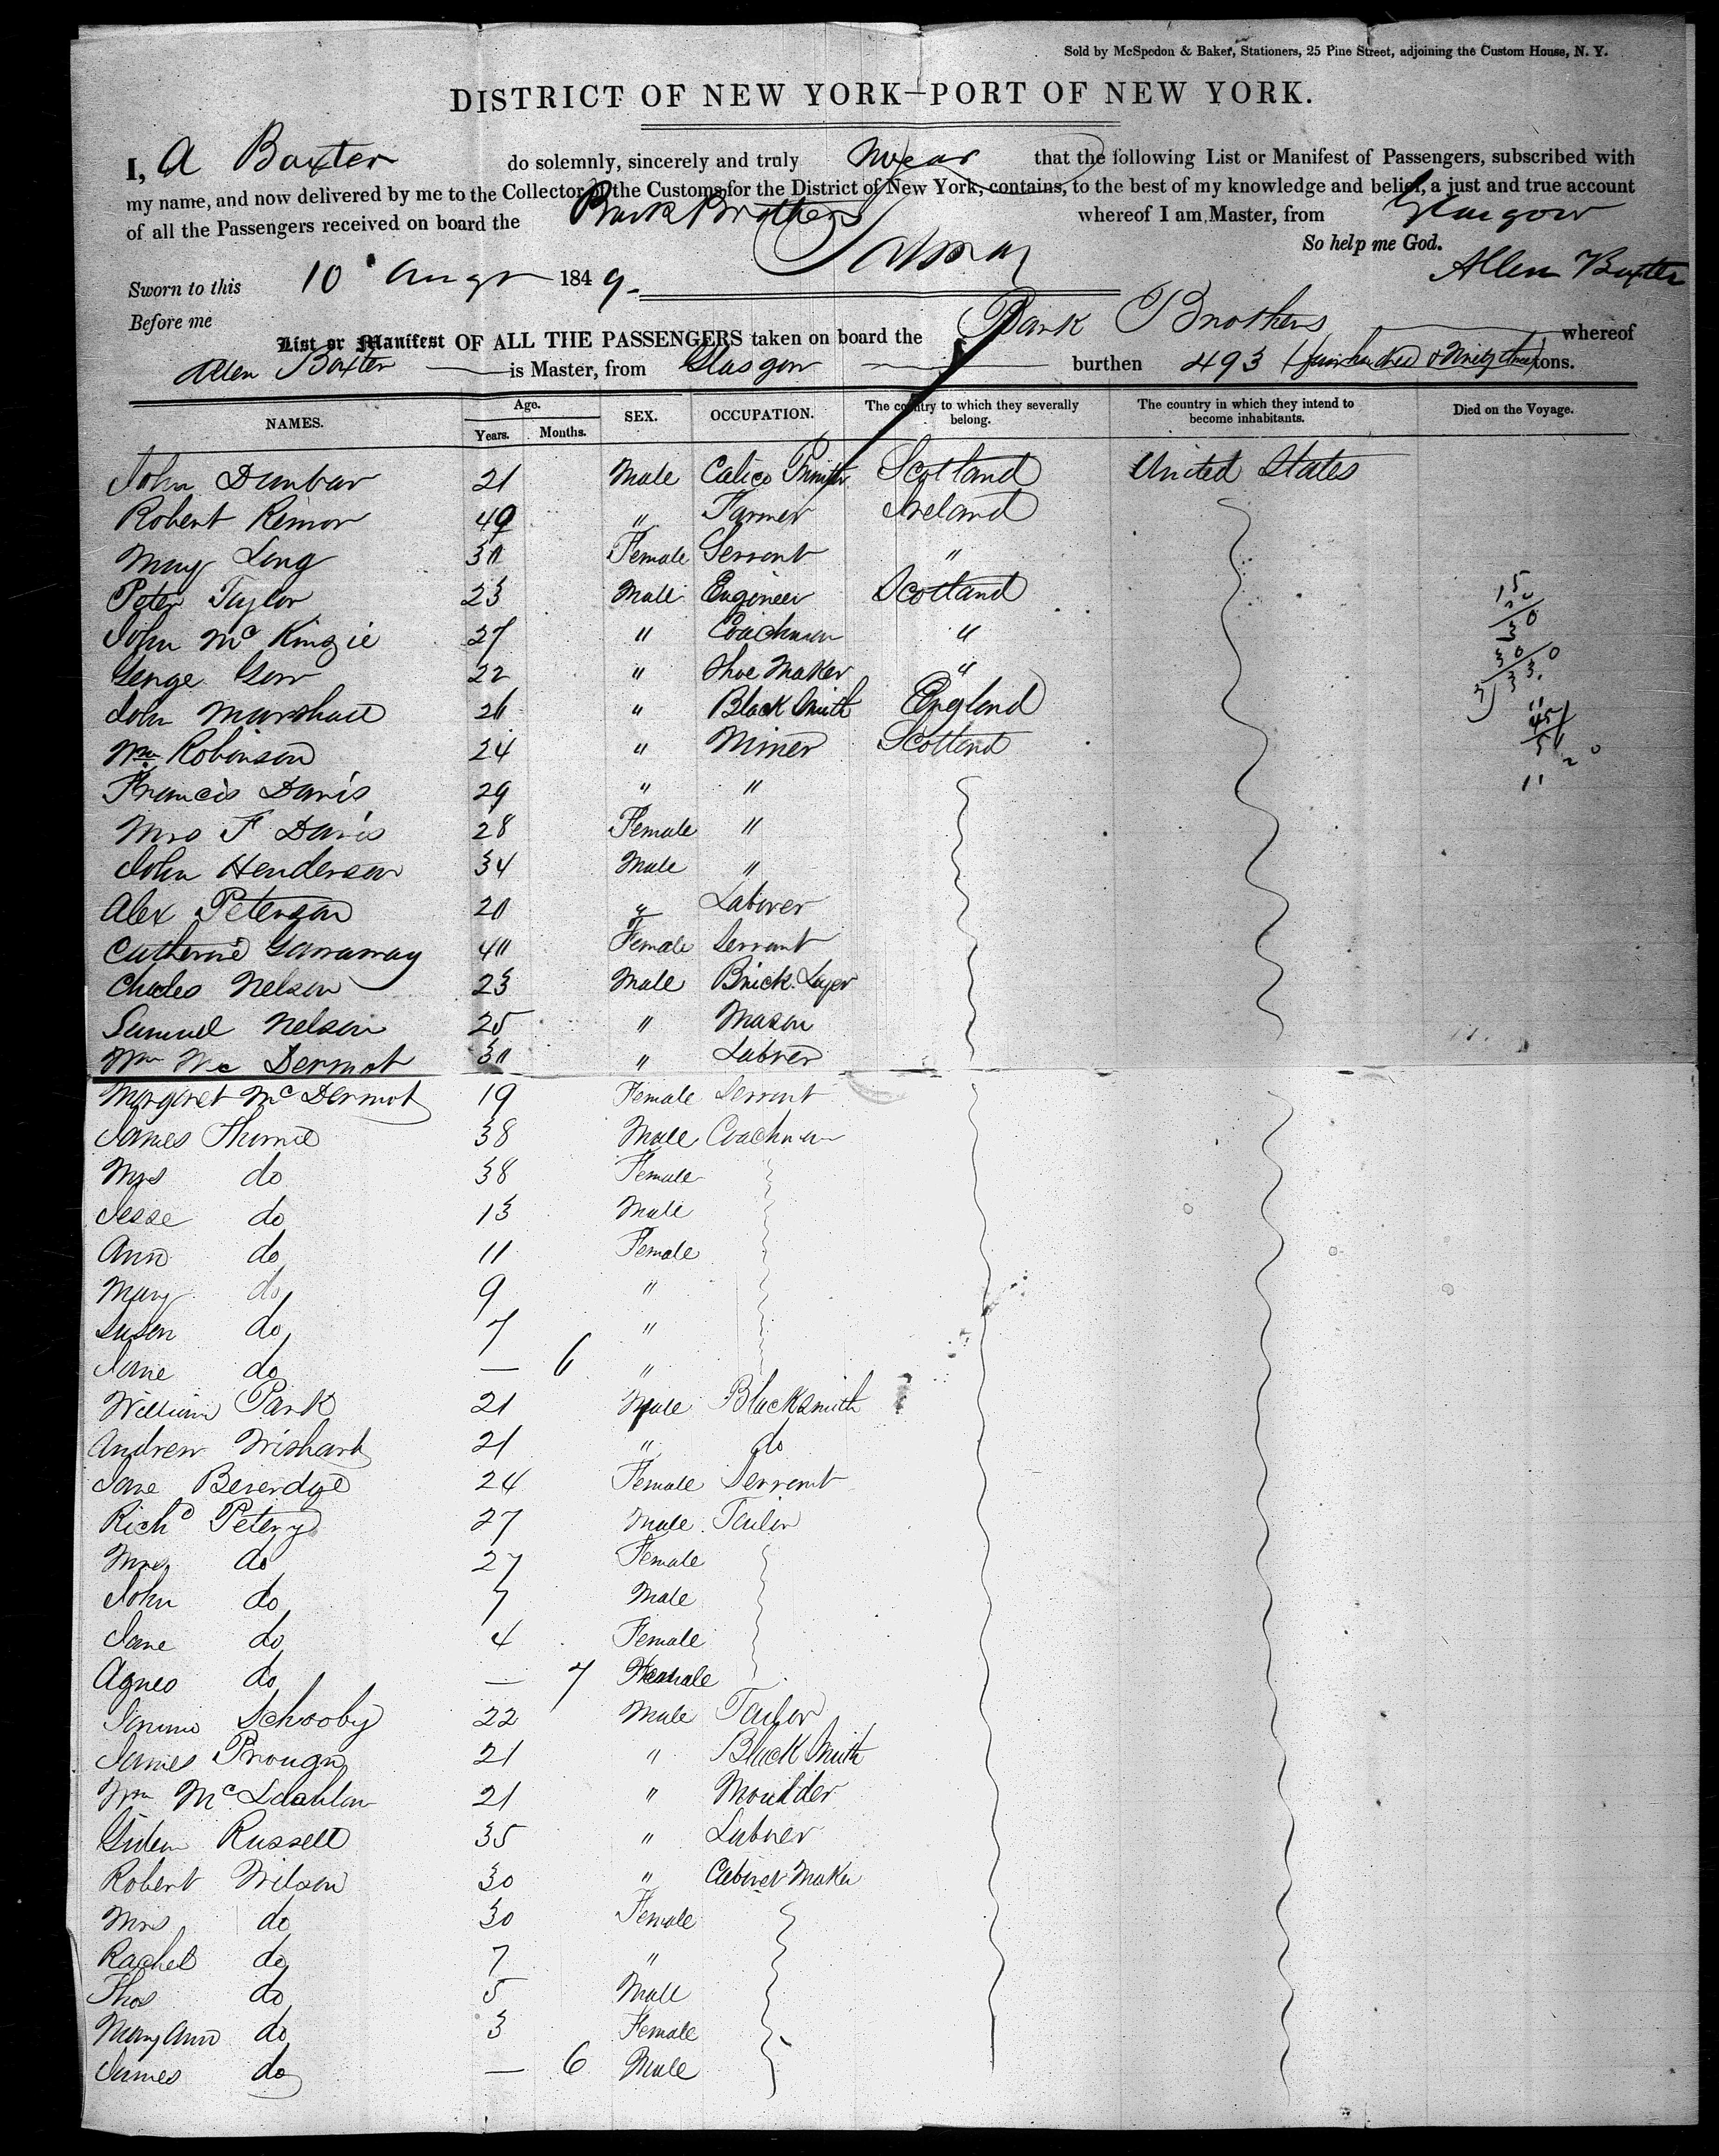 Sold by McSpedon & Baker, Stationers, 25 Pine Street, adjoining the Custom House, N. Y.
DISTRICT OF NEW YORK—PORT OF NEW YORK.
I, A Baxter do solemnly, sincerely and truly swear that the following List or Manifest of Passengers, subscribed with
my name, and now delivered by me to the Collector of the Customs for the District of New York, contains, to the best of my knowledge and belief, a just and true account
of all the Passengers received on board the Bark Brothers whereof I am Master, from Glasgow
So help me God.
Sworn to this 10 Augt 1849. Allen Baxter
Before me
List or Manifest OF ALL THE PASSENGERS taken on board the Bark Brothers whereof
Allen Baxter is Master, from Glasgow burthen 493 (four hundred & Ninety three) tons.
NAMES. Age. Years. Months. SEX. OCCUPATION. The country to which they severally belong. The country in which they intend to become inhabitants. Died on the Voyage.
John Dunbar 21 Male Calico Printer Scotland United States
Robert 49 " Farmer Ireland
Mary Long 30 Female Servant "
Peter Taylor 23 Male Engineer Scotland
John Mc Kinzie 27 " Coachman "
George Gow 22 " Shoe Maker "
John Marshall 20 " Black Smith England
Wm Robinson 24 " Miner Scotland
Francis Davis 29 " "
Mrs F Davis 28 Female "
John Henderson 34 Male "
Alex Peterson 20 " Laborer
Catherine Garraway 40 Female Servant
Charles Nelson 23 Male Brick Layer
Samuel Nelson 25 " Mason
Wm Mc Dermot 30 " Labrer
Margaret Mc Dermot 19 Female Servant
James 38 Male Coachman
Mrs do 38 Female
Jesse do 13 Male
Ann do 11 Female
Mary do 9 "
Susan do 7 "
Jane do — 6 "
William Park 21 Male Blacksmith
Andrew Wishart 21 " do
Jane Beverdge 24 Female Servant
Richd 27 Male Tailor
Mrs do 27 Female
John do 7 Male
Jane do 4 Female
Agnes do — 7 Female
Schooby 22 Male Tailor
James 21 " Black Smith
Wm 21 " Moulder
Gideon Russell 35 " Labrer
Robert Wilson 30 " Cabinet Maker
Mrs do 30 Female
Rachel do 7 "
Thos do 5 Male
Mary Ann do 3 Female
James do — 6 Male